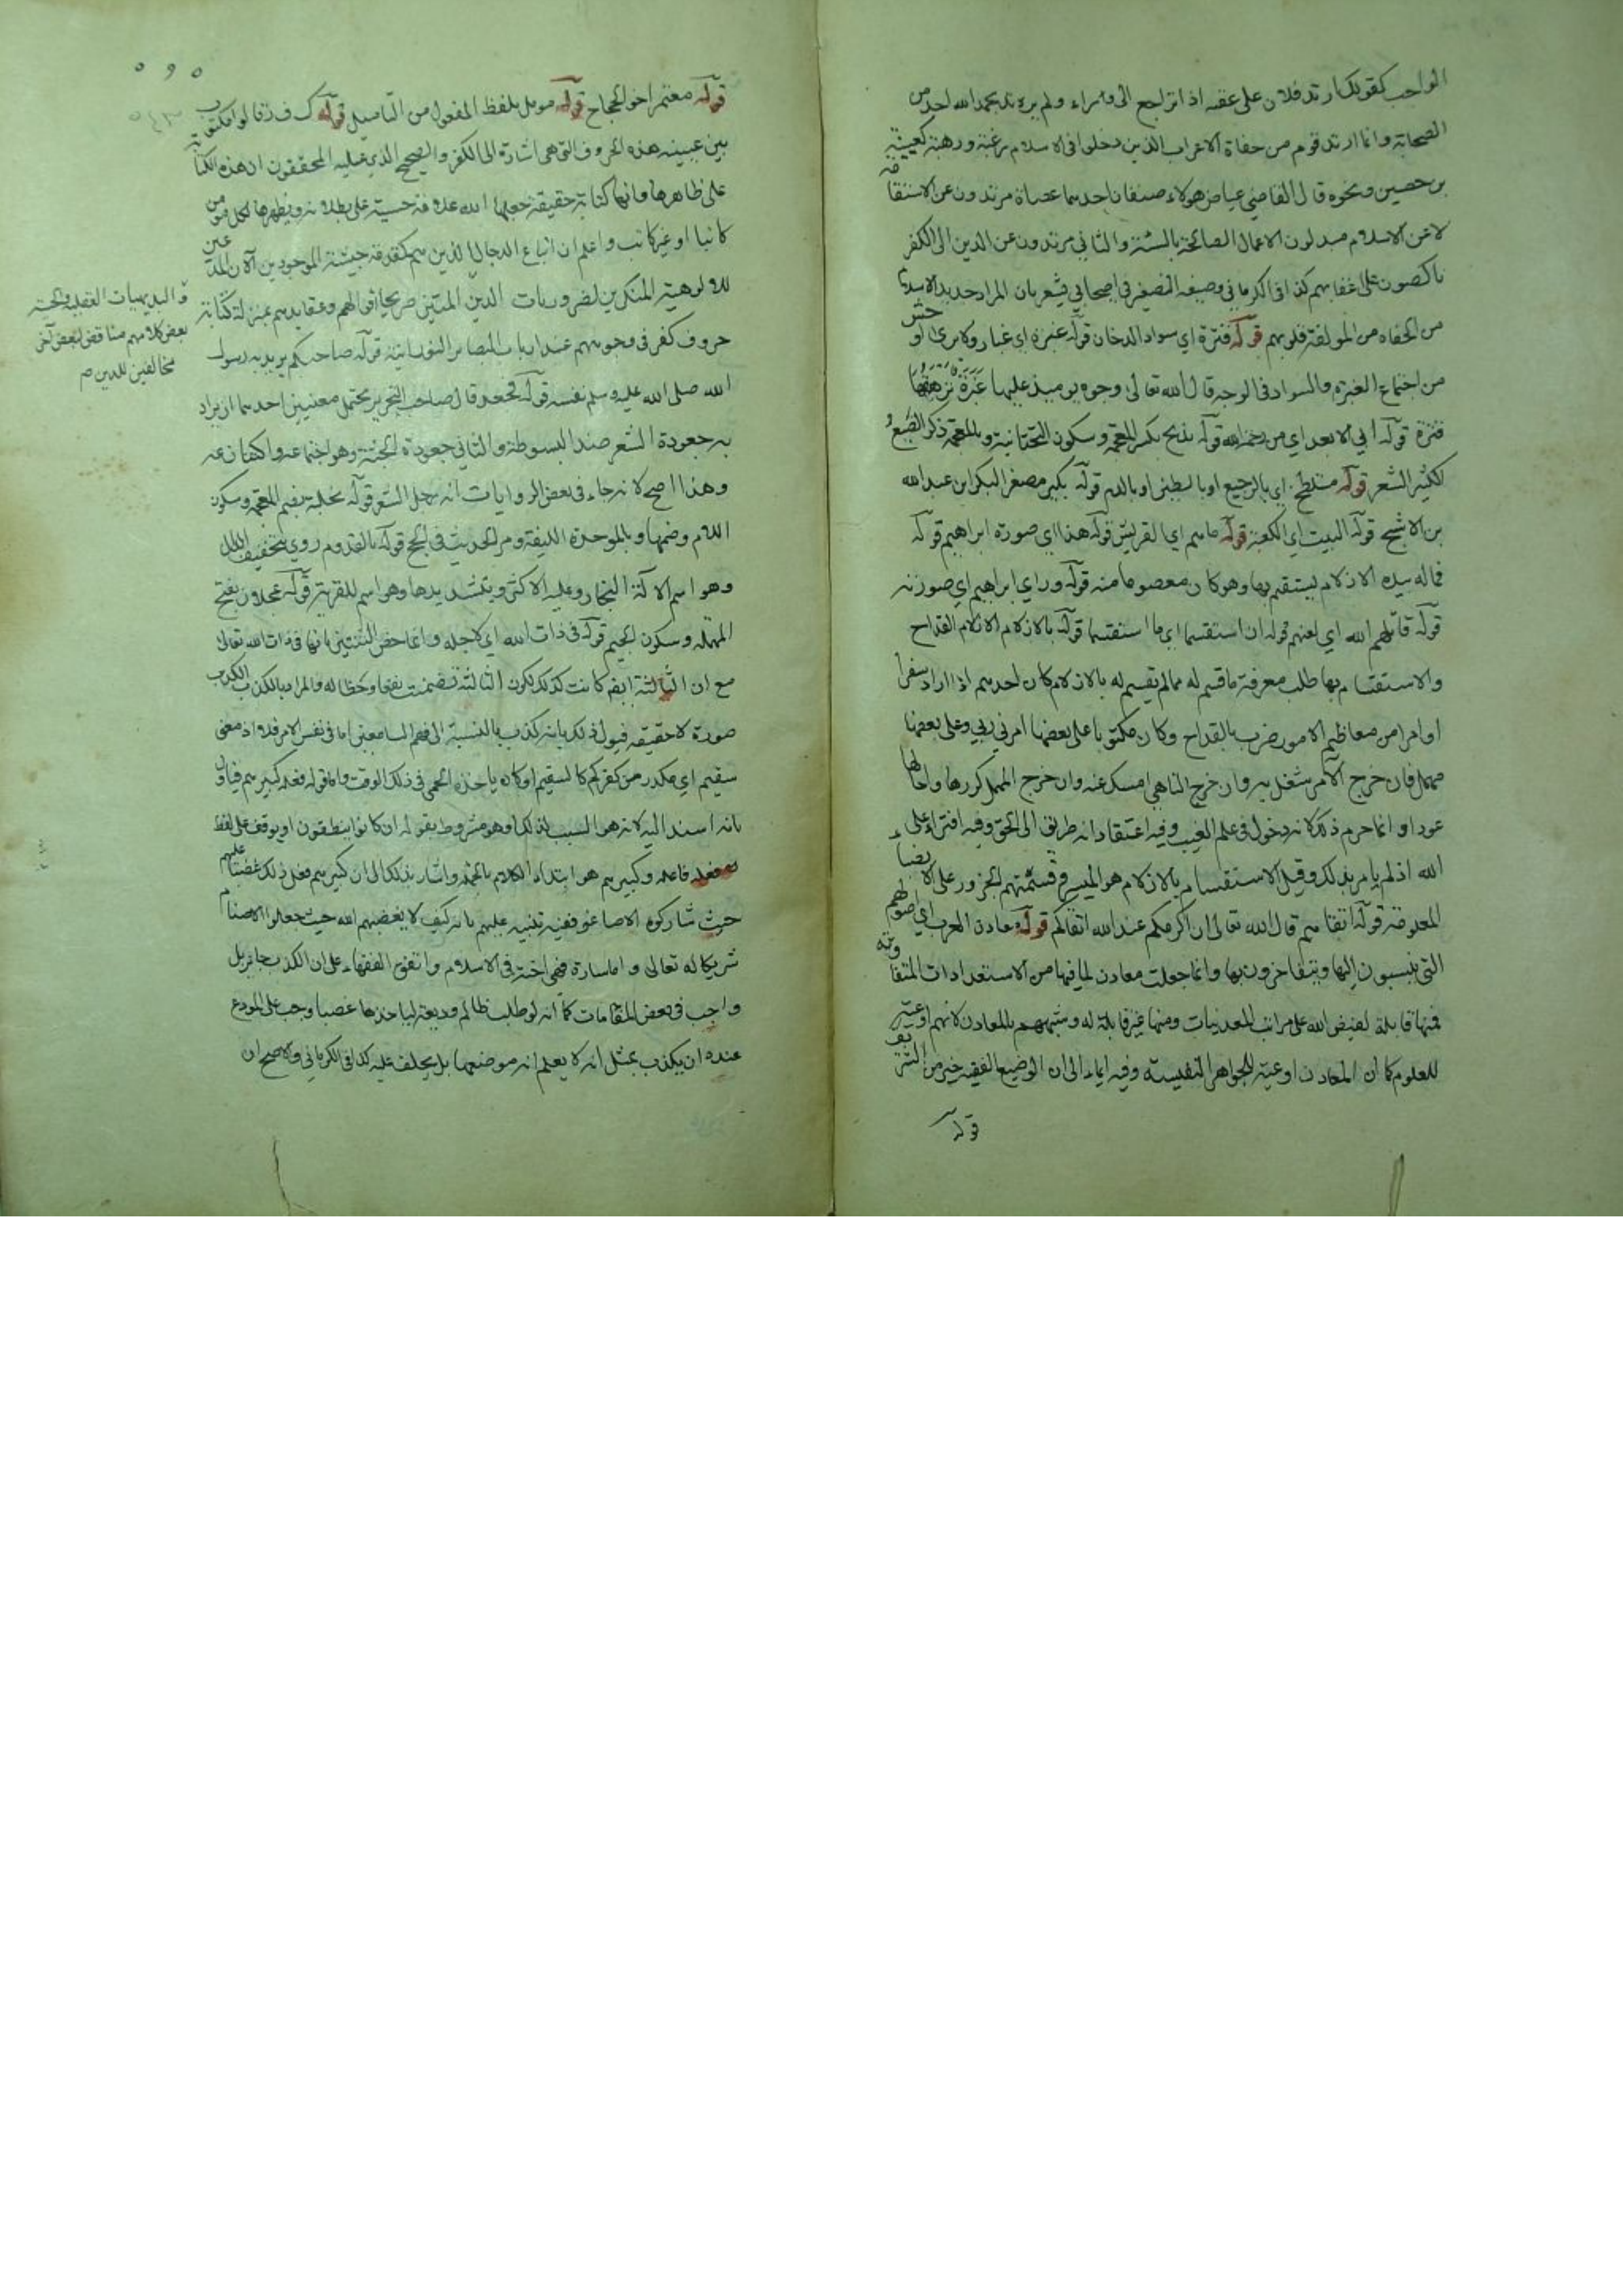 الواجب كقولك ارتد فلان على عقبه اذا تراجع الى وراء ولم يرتد بحمد الله احد من
الصحابة وانما ارتد قوم من جفاة الاعراب الذين دخلوا في الاسلام رغبة ورهبة كعيينة
بن حصين ونحوه قال القاضي عياض هولاء صنفان احدهما عصاة مرتدون عن الاستقامة
لا عن الاسلام مبدلون الاعمال الصالحة بالسيئة والثاني مرتدون عن الدين الى الكفر
ناكصون على اعقابهم كذا في الكرماني وصيغة التصغير في اصحابي يشعر بان المراد حديد الاسلام
من الجفاه من المولفة قلوبهم قوله قترة اي سواد الدخان قوله غبرة اي غبار ولا يرى اوحش
من اجتماع الغبرة والسواد في الوجه قال الله تعالى وجوه يومئذ عليها غبرة ترهقها
قترة قوله ابي الابعد اي من رحمة الله قوله بذيخ بكسر المعجمة وسكون التحتانية وبالمعجمة ذكر الضبع
الكثير الشعر قوله متلطخ اي بالرجيع او بالطين او بالدم قوله بكير مصغر البكر ابن عبد الله
بن الاشج قوله البيت اي الكعبة قوله ما هم اي القريش قوله هذا اي صورة ابراهيم قوله
فاله بيده الازلام ليستقيم بها وهو كان معصوما منه قوله وراي ابراهيم اي صورته
قوله قاتلهم الله اي لعنهم قوله ان استقسما اي ما استقسما قوله بالازلام الازلام القداح
والاستقسام بها طلب معرفة ما قسم له مما لم يقسم له بالازلام كان احدهم اذا اراد سفرا
او امرا من معاظم الامور ضرب بالقداح وكان مكتوبا على بعضها امرني ربي وعلى بعضها
مهمل فان خرج الآمر شغل به وان خرج الناهي امسك عنه وان خرج المهمل كررها واجالها
عودا وانما حرم ذلك لانه دخول في علم الغيب وفيه اعتقاد انه طريق الى الحق وفيه افتراء على
الله اذ لم يامر بذلك وقيل الاستقسام بالازلام هو الميسر وقسمتهم الجزور على الانصباء
المعلومة قوله اتقاهم قال الله تعالى ان اكرمكم عند الله اتقاكم قوله معادن العرب اي اصولهم
التي ينسبون اليها ويتفاخرون بها وانما جعلت معادن لما فيها من الاستعدادات المتفاوتة
فمنها قابلة لفيض الله على مراتب المعدنيات ومنها غير قابلة له وشبههم بالمعادن لانهم اوعية
للعلوم كما ان المعادن اوعية للجواهر النفيسة وفيه ايماء الى ان الوضيع الفقيه خير من الشريف
قوله
قوله معتمر اخو الحجاج قوله مومل بلفظ المفعول من التاميل قوله ك ف ر قالوا مكتوب
بين عينيه هذه الحروف التي هي اشارة الى الكفر والصحيح الذي عليه المحققون ان هذه الكتابة
على ظاهرها وانها كتابة حقيقة جعلها الله علامة حسية على بطلانه ويظهرها لكل مومن
كاتبا او غير كاتب واعلم ان اتباع الدجال الذين هم كمقدمة جيشه الموجودين الآن المدعين
للالوهية المنكرين لضروريات الدين المتين صريحا اقوالهم وعقايدهم بمنزلة كتابة
حروف كفر في وجوههم عند ارباب البصاير النورانية قوله صاحبكم يريد به رسول
الله صلى الله عليه وسلم نفسه قوله فجعد قال صاحب التحرير يحتمل معنيين احدهما ان يراد
به جعودة الشعر ضد البسوطة والثاني جعودة الجثة وهو اجتماعه واكتنازه
وهذا اصح لانه جاء في بعض الروايات انه رجل الشعر قوله بخلبة بضم المعجمة وسكون
اللام وضمها وبالموحدة الليفة ومر الحديث في الحج قوله بالقدوم روي بتخفيف الدال
وهو اسم الآلة النجار وعليه الاكثر وبتشديدها وهو اسم للقرية قوله عجلان بفتح
المهملة وسكون الجيم قوله في ذات الله اي لاجله وانما خص الثنتين بانها في ذات الله تعالى
مع ان الثالثة ايضا كانت كذلك لكون الثالثة تضمنت نفعا وحظا له والمراد بالكذب الكذب
صورة لا حقيقة فيول ذلك بانه كذب بالنسبة الى فهم السامعين اما في نفس الامر فلا اذ معنى
سقيم اي مكدر من كفركم كالسقيم او كان ياخذه الحمى في ذلك الوقت واما قوله فعله كبيرهم فياول
بانه اسند اليه لانه هو السبب لذلك او هو مشروط بقوله ان كانوا ينطقون او يوقف على لفظ
فعله فاعله وكبيرهم هو ابتداء الكلام بالجملة واشار بذلك الى ان كبيرهم فعل ذلك غضبا عليهم
حيث شاركوه الاصاغر ففيه تنبيه عليهم بانه كيف لا يغضبهم الله حيث جعلوا الاصنام
شريكا له تعالى واما سارة فهي اخته في الاسلام واتفق الفقهاء على ان الكذب جائز بل
واجب في بعض المقامات كما انه لو طلب ظالم وديعة لياخذها غصبا وجب على المودع
عنده ان يكذب بمثل انه لا يعلم انه موضعها بل يحلف عليه كذا في الكرماني والاصح ان
والبديهيات العقلية والحسية
بعض كلامهم مناقض لبعض آخر
مخالفين للدين صم